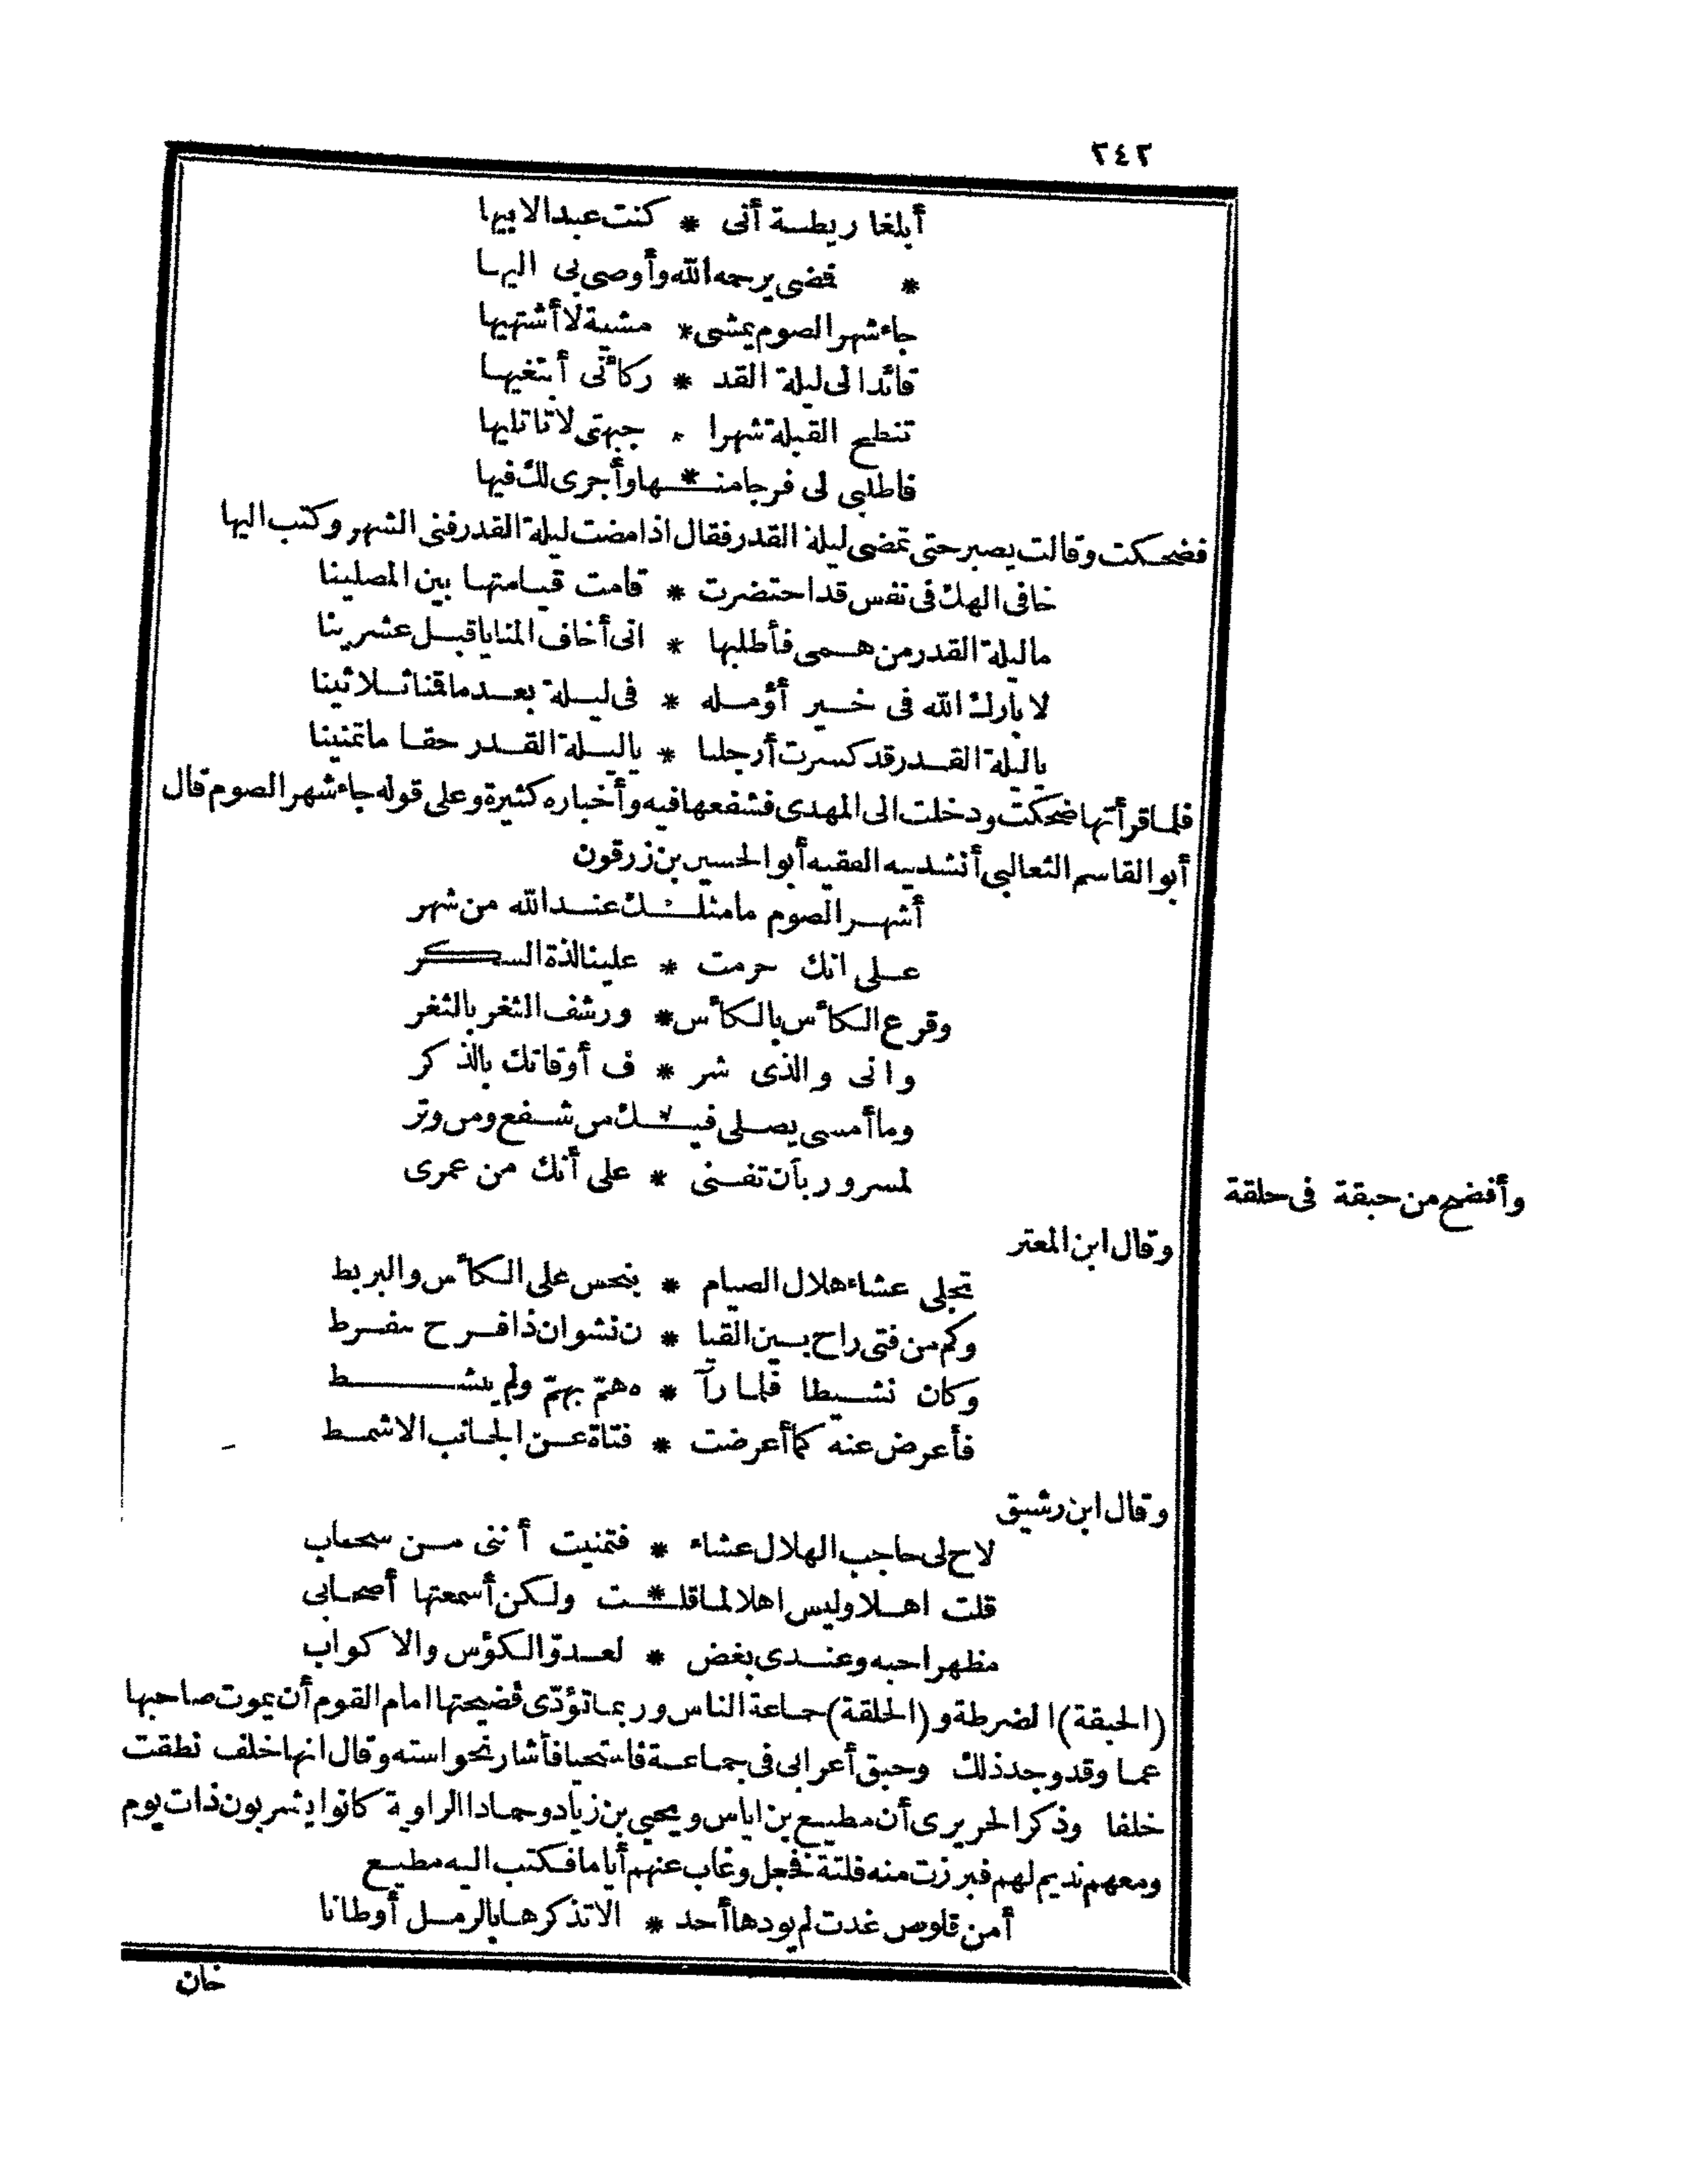 ٢٤٢
أبلغا ريطة أنى * كنت عبدا لابيها
* قضى يرحمه الله وأوصى بى اليها
جاء شهر الصوم يمشى * مشية لا أشتهيها
قائدا لى ليلة القد * ر كأنى أبتغيها
تنطح القبلة شهرا * جبهتى لا تاتليها
فاطلبى لى فرجا منـ * ـها وأجرى لك فيها
فضحكت وقالت يصبر حتى تمضى ليلة القدر فقال اذا مضت ليلة القدر فنى الشهر وكتب اليها
خافى الهك فى نفس قد احتضرت * قامت قيامتها بين المصلينا
ما ليلة القدر من همى فأطلبها * انى أخاف المنايا قبل عشرينا
لا بارك الله فى خير أؤمله * فى ليلة بعد ما قمنا ثلاثينا
يا ليلة القدر قد كسرت أرجلنا * يا ليلة القدر حقا ما تمنينا
فلما قرأتها ضحكت ودخلت الى المهدى فشفعها فيه وأخباره كثيرة وعلى قوله جاء شهر الصوم قال
أبو القاسم الثعالبى أنشدنيه الفقيه أبو الحسين بن زرقون
أشهر الصوم ما مثلـ * ـك عند الله من شهر
على انك حرمت * علينا لذة السكر
وقرع الكأس بالكأس * ورشف الثغر بالثغر
وانى والذى شر * ف أوقاتك بالذكر
وما أمسى يصلى فيـ * ـك من شفع ومن وتر
لمسرور بأن تفنى * على أنك من عمرى
وأفضح من حبقة فى حلقة
وقال ابن المعتز
تجلى عشاء هلال الصيام * بنحس على الكأس والبربط
وكم من فتى راح بين القيا * ن نشوان ذا فرح مفرط
وكان نشيطا فلما رآ * ه همّ بهمّ ولم ينشط
فأعرض عنه كما أعرضت * فتاة عن الجانب الاشمط
وقال ابن رشيق
لاح لى حاجب الهلال عشاء * فتمنيت أننى من سحاب
قلت اهلا وليس اهلا لما قلـ * ـت ولكن أسمعتها أصحابى
مظهرا حبه وعندى بغض * لعدوّ الكؤس والاكواب
(الحبقة) الضرطة و(الحلقة) جماعة الناس وربما تؤدّى فضيحتها امام القوم أن يموت صاحبها
غما وقد وجد ذلك وحبق أعرابى فى جماعة فاستحيا فأشار نحو استه وقال انها خلف نطقت
خلفا وذكر الحريرى أن مطيع بن اياس ويحيى بن زياد وحمادا الراوية كانوا يشربون ذات يوم
ومعهم نديم لهم فبرزت منه فلتة فخجل وغاب عنهم أياما فكتب اليه مطيع
أمن قلوص غدت لم يودها أحد * الا تذكرها بالرمل أوطانا
خان